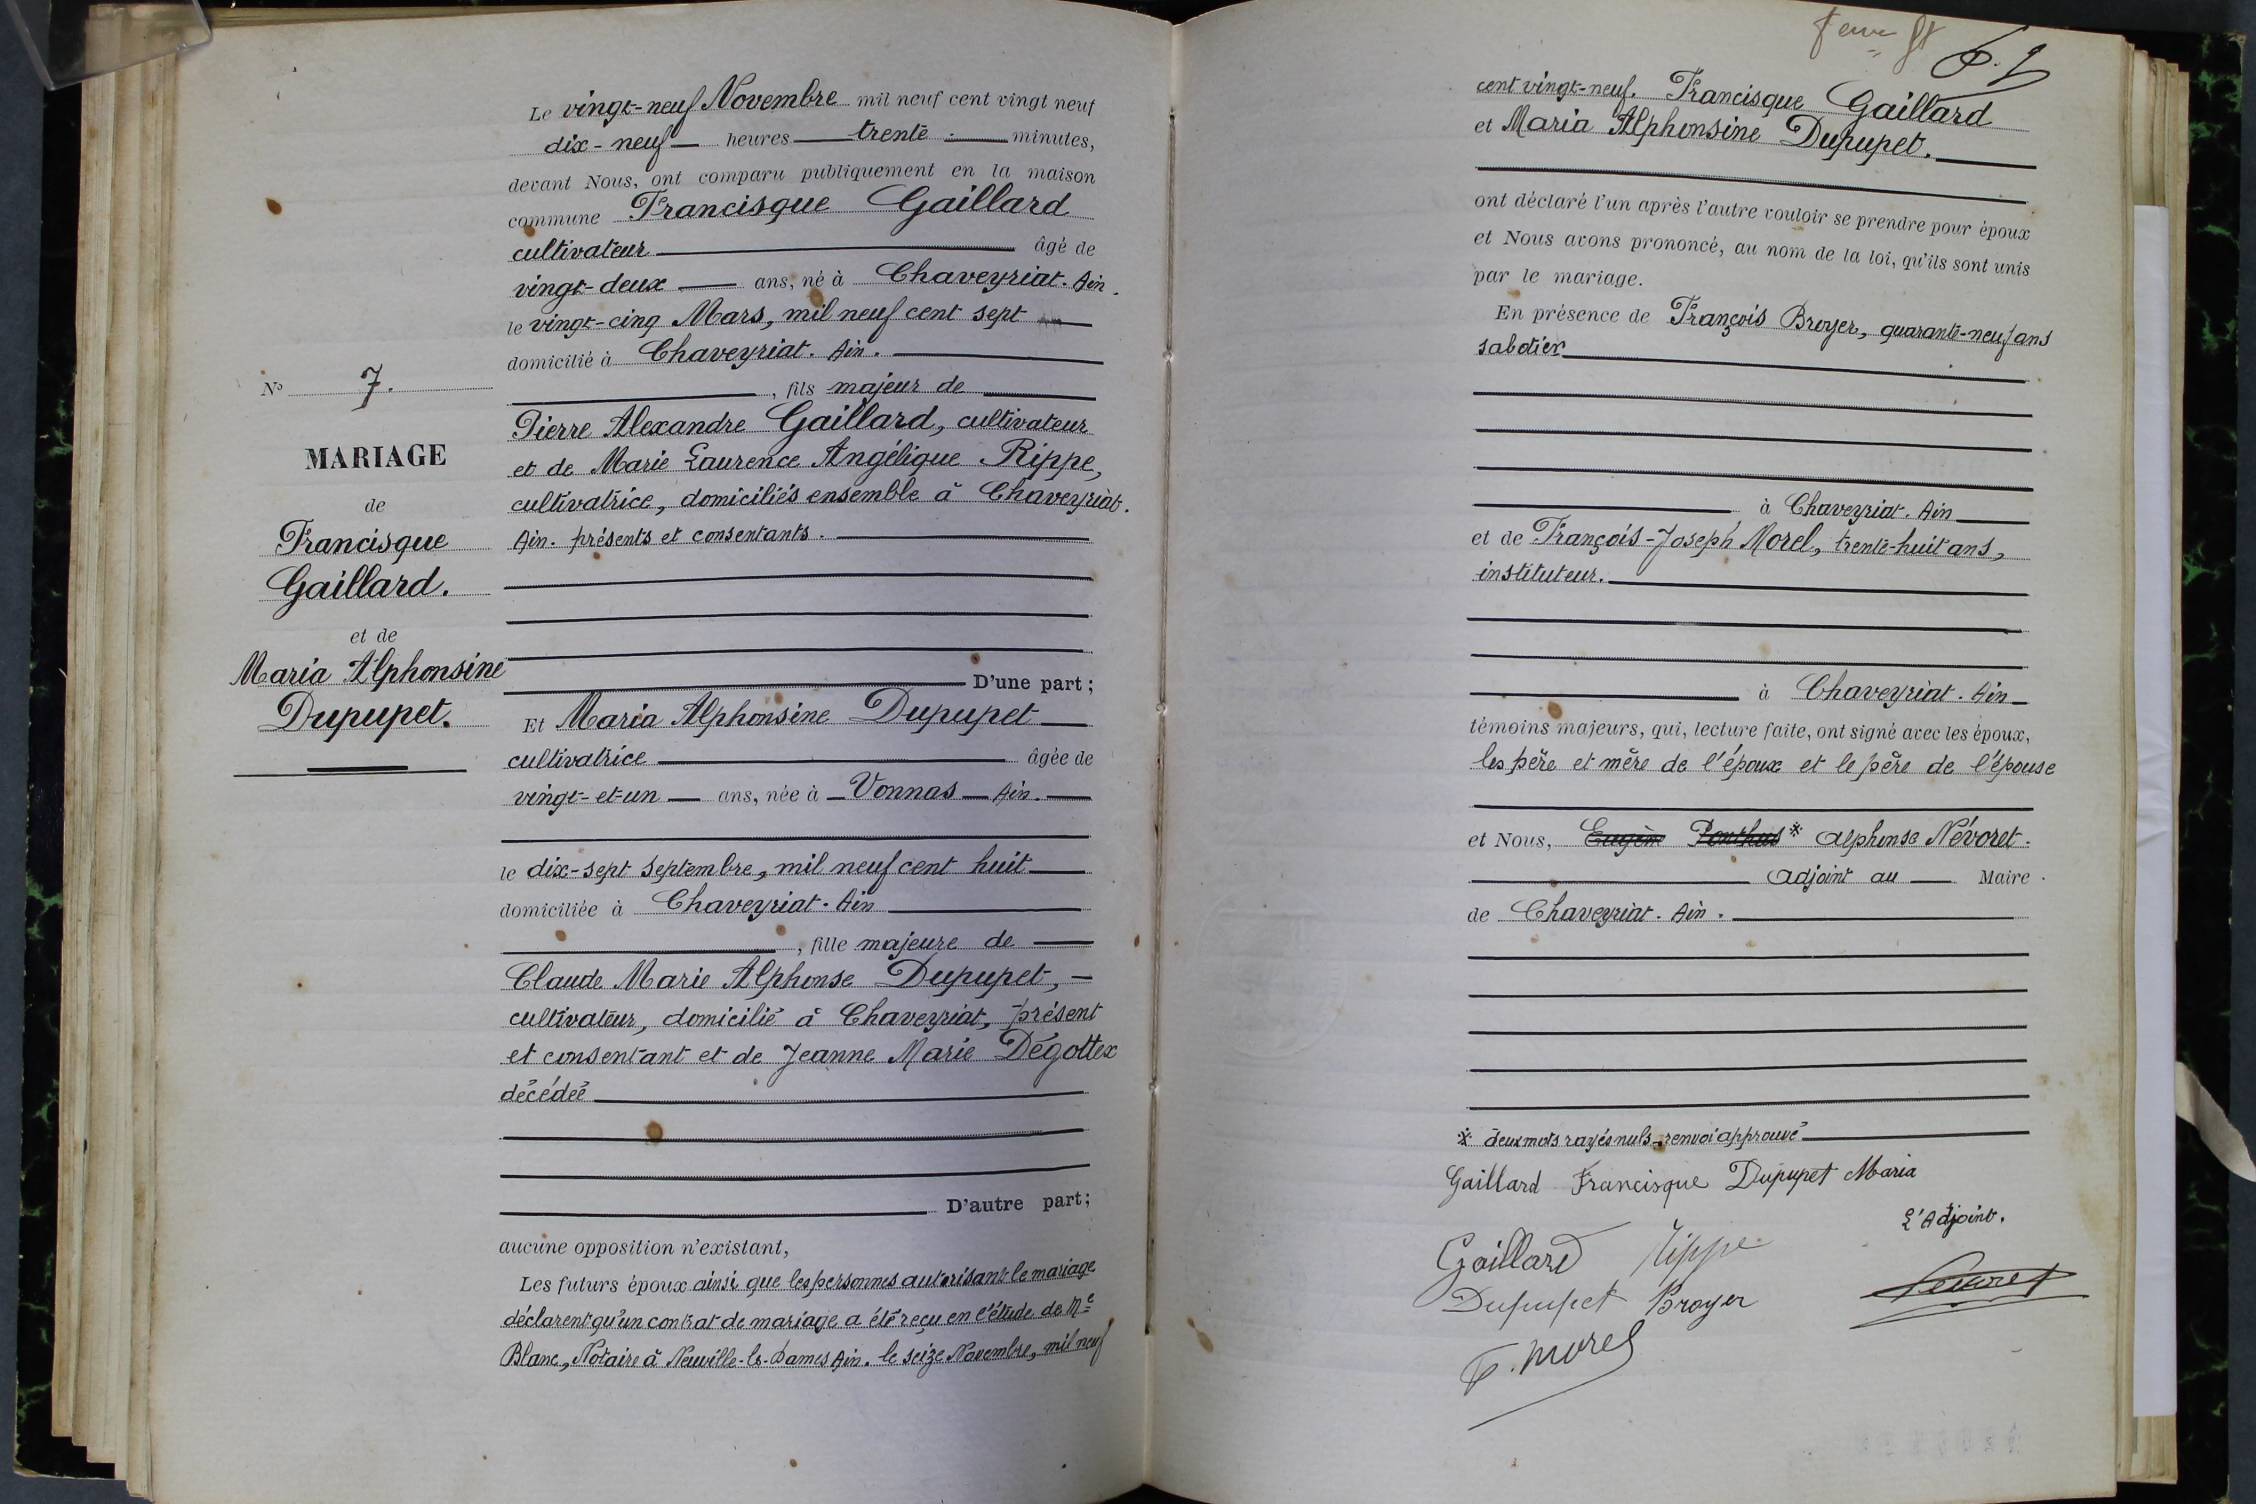 N° 7.
MARIAGE
de
Francisque
Gaillard.
et de
Maria Alphonsine
Dupupet.
Le vingt-neuf Novembre mil neuf cent vingt neuf
dix-neuf heures trente minutes,
devant Nous, ont comparu publiquement en la maison
commune Francisque Gaillard
cultivateur âgé de
vingt-deux ans, né à Chaveyriat. Ain.
le vingt-cinq Mars, mil neuf cent sept
domicilié à Chaveyriat. Ain.
, fils majeur de
Pierre Alexandre Gaillard, cultivateur
et de Marie Laurence Angélique Rippe,
cultivatrice, domiciliés ensemble à Chaveyriat.
Ain. présents et consentants.
D'une part;
Et Maria Alphonsine Dupupet
cultivatrice âgée de
vingt-et-un ans, née à Vonnas Ain.
le dix-sept septembre, mil neuf cent huit
domiciliée à Chaveyriat. Ain
, fille majeure de
Claude Marie Alphonse Dupupet,
cultivateur, domicilié à Chaveyriat, présent
et consentant et de Jeanne Marie Dégottex
décédée
D'autre part;
aucune opposition n'existant,
Les futurs époux ainsi que les personnes autorisant le mariage
déclarent qu'un contrat de mariage a été reçu en l'étude de Me
Blanc, Notaire à Neuville-les-Dames Ain. le seize Novembre, mil neuf
cent vingt-neuf. Francisque Gaillard
et Maria Alphonsine Dupupet.
ont déclaré l'un après l'autre vouloir se prendre pour époux
et Nous avons prononcé, au nom de la loi, qu'ils sont unis
par le mariage.
En présence de François Broyer, quarante-neuf ans
sabotier
à Chaveyriat. Ain
et de François-Joseph Morel, trente-huit ans,
instituteur.
à Chaveyriat. Ain
témoins majeurs, qui, lecture faite, ont signé avec les époux,
les père et mère de l'époux et le père de l'épouse
et Nous, Eugène Ponthus * Alphonse Névoret.
Adjoint au Maire
de Chaveyriat. Ain.
* deux mots rayés nuls - renvoi approuvé
Gaillard Francisque Dupupet Maria
L'Adjoint.
Gaillard Rippe
Dupupet Broyer
F. Morel